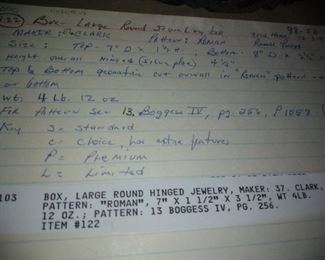 (122) Box - Large Round Jewelry, box
MAKER: CLARK Pattern: ROMAN
Size: Top - 7" D x 1½ H. ; Bottom: 8" D x 3½
Height overall hinged (silver plate) 4½"
Top & Bottom geometric cut overall in "Roman" pattern
or bottom
Wt: 4 Lb. 12 oz
For Pattern See 13, Boggess IV, pg. 256, P
Key S = Standard
C = Choice, has extra features
P = Premium
L = Limited
103 BOX, LARGE ROUND HINGED JEWELRY, MAKER: 37. CLARK,
PATTERN: "ROMAN", 7" X 1 1/2" X 3 1/2", WT 4LB.
12 OZ.; PATTERN: 13 BOGGESS IV, PG. 256.
ITEM #122